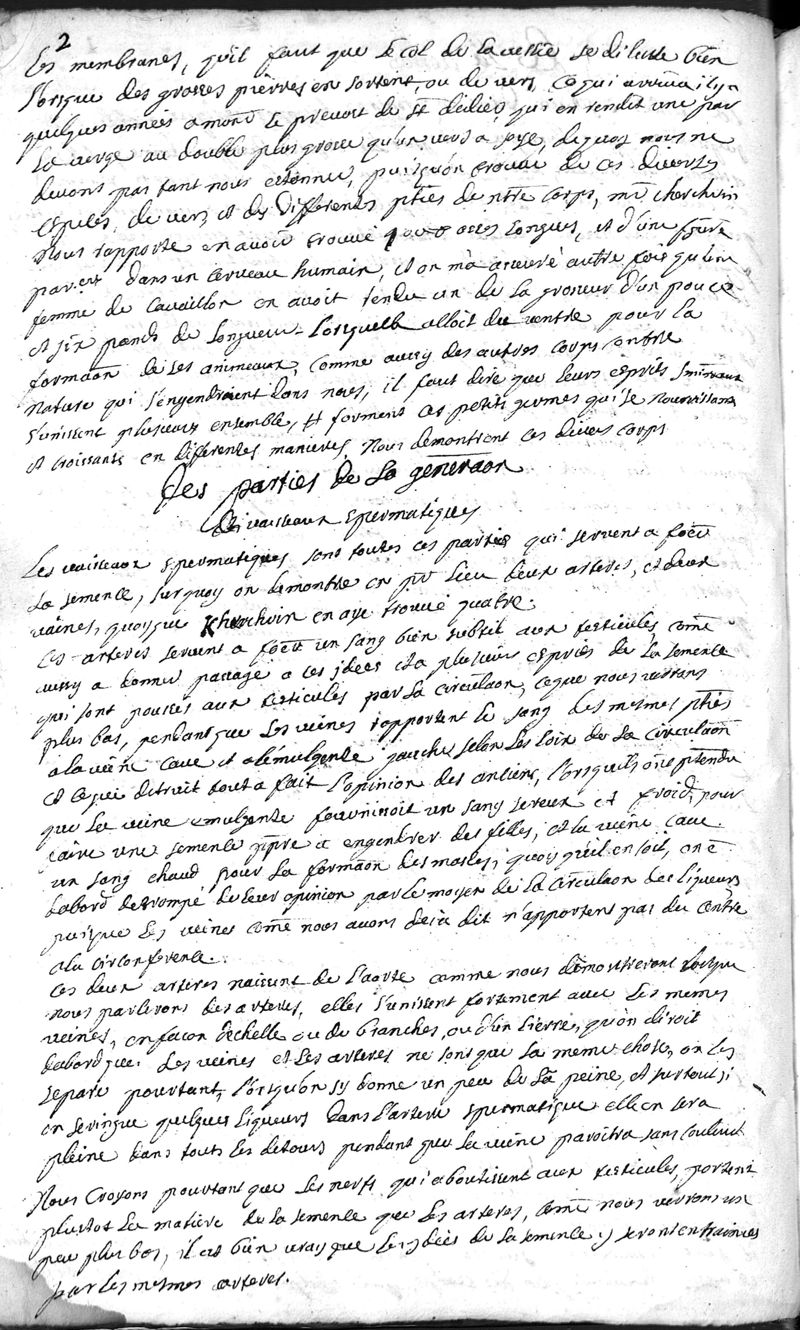 2
Les membranes, qu'il faut que le col de la vessie se dilatte bien
lorsque des grosses pierres en sortent, ou de vers, ce qui arriva il y a
quelques années a monʳ le prevost de sᵗ didier, qui en rendit une par
la verge au double plus grosse qu'un vers a soye, de quoy nous ne
devons pas tant nous etonner, puisqu'on trouve de ces diverses
especes de vers et des differentes pties de nt̄re corps, mʳ cherchvin
nous rapporte en avoir trouvé asses longues, et d'une figure
dans un cerveau humain, et on m'a asseuré autre fois qu'une
femme de Cavaillon en avoit rendu un de la grosseur d'un pouce
et six pands de longueur lorsquelle alloit du ventre pour la
formāon de ses animeaux, comme aussy des autres corps contre
nature qui s'engendroient dans nous, il faut dire que leurs esprits seminaux
s'unissent plusieurs ensemble, et forment ces petits germes qui se nourrissans
et croissants en differentes manieres, nous demontrent ces divers corps
Des parties de la generāon
Des vaisseaux spermatiques
Les vaisseaux spermatiques sont toutes ces parties qui servent a foēr
la semence, surquoy on demontre en pʳ lieu deux arteres, et deux
vaines, quoyque kherchvin en aye trouvé quatre.
Les arteres servent a foēr un sang bien subtil aux testicules, com̄e
aussy a donner passage a ces jdees et a plusieurs esprits de la semence
qui sont poussés aux testicules par la circulāon, ce que nous verrons
plus bas, pendant que les veines rapportent le sang des mesmes pties
a la veine cave et a l'emulgente gauche selon les loix de la circulāon
et ce qui detruit tout a fait l'opinion des anciens, lorsqu'ils ont ptendu
que la veine emulgente fournissoit un sang sereux et froid, pour
faire une semence ppre a engendrer des filles, et la veine cave
un sang chaud pour la formāon des masles, quoy qu'il en soit, on ē
dabord detrompé de leur opinion par le moyen de la circulāon des liqueurs
puisque les veines com̄e nous avons deja dit n'apportent pas du centre
a la circonference.
Ces deux arteres naissent de l'aorte comme nous demontrerons lorsque
nous parlerons des arteres, elles s'unissent fortement avec les memes
veines, en facon d'echelle ou de branches, ou d'un lierre, qu'on diroit
dabord que les veines et les arteres ne sont que la meme chose, on les
separe pourtant, lorsqu'on sy donne un peu de la peine, et surtout si
on seringue quelques liqueurs dans l'artere spermatique elle en sera
pleine dans touts les détours pendant que la veine paroitra sans couleur
Nous croyons pourtant que les nerfs qui aboutissent aux testicules, portent
plustot la matiere de la semence que les arteres, com̄e nous verrons un
peu plus bas, il est bien vray que les jdées de la semence y seront entrainées
par les mesmes arteres.